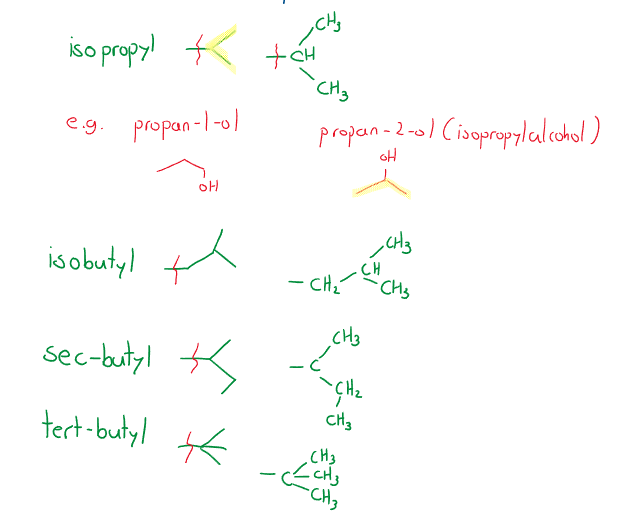 isopropyl CH CH3 CH3
e.g. propan-1-ol propan-2-ol (isopropylalcohol)
OH OH
isobutyl -CH2 CH CH3 CH3
sec-butyl -C CH3 CH2 CH3
tert-butyl -C CH3 CH3 CH3